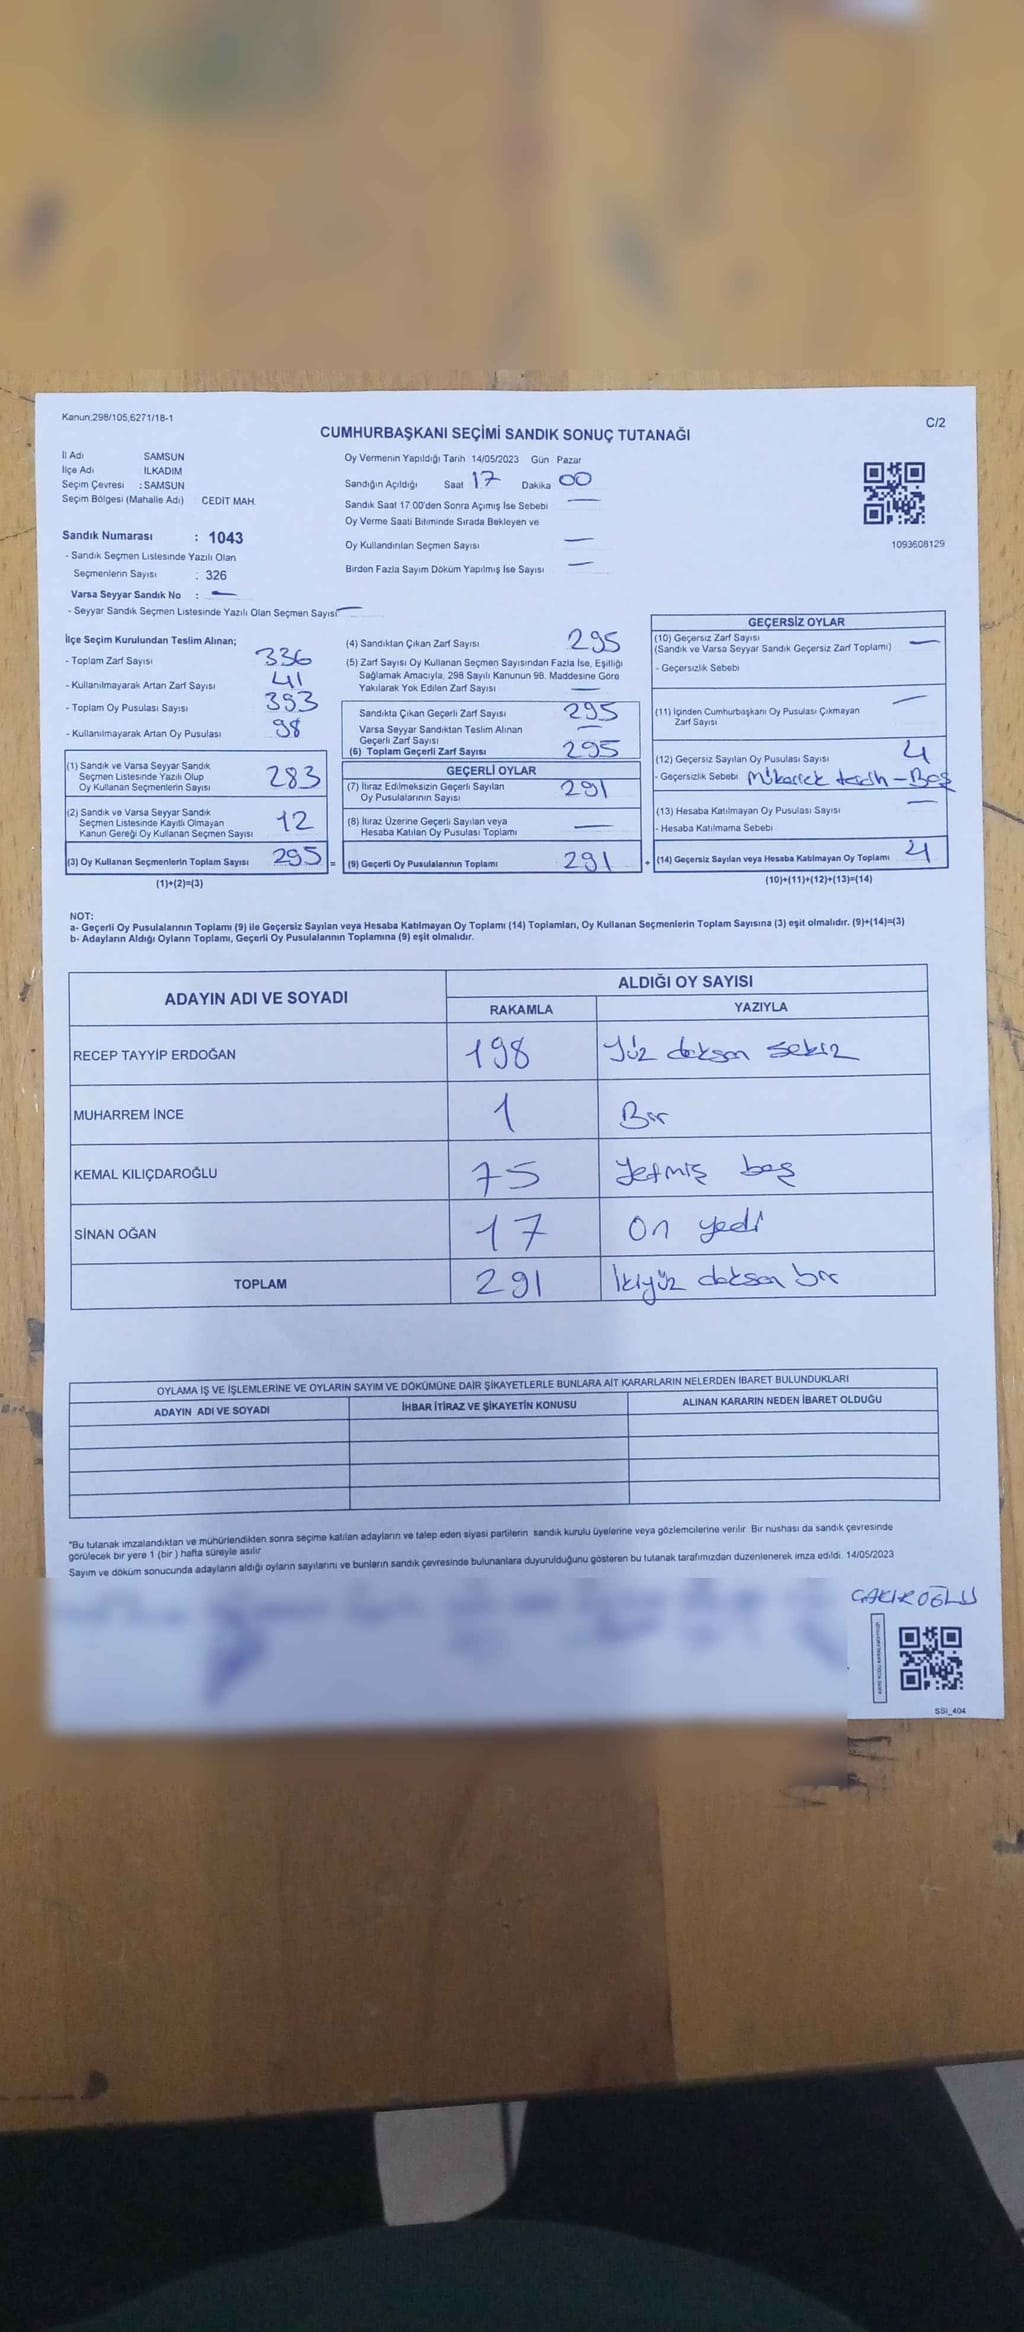 Kanun,298/105,6271/18-1
C/2
CUMHURBAŞKANI SEÇİMİ SANDIK SONUÇ TUTANAĞI
İl Adı SAMSUN
İlçe Adı İLKADIM
Seçim Çevresi : SAMSUN
Seçim Bölgesi (Mahalle Adı) CEDİT MAH.
Oy Vermenin Yapıldığı Tarih 14/05/2023 Gün Pazar
Sandığın Açıldığı Saat 17 Dakika 00
Sandık Saat 17 00'den Sonra Açımış İse Sebebi —
Oy Verme Saati Bitiminde Sırada Bekleyen ve
Oy Kullandırılan Seçmen Sayısı —
Birden Fazla Sayım Döküm Yapılmış İse Sayısı —
1093608129
Sandık Numarası : 1043
- Sandık Seçmen Listesinde Yazılı Olan
Seçmenlerin Sayısı : 326
Varsa Seyyar Sandık No : —
- Seyyar Sandık Seçmen Listesinde Yazılı Olan Seçmen Sayısı —
İlçe Seçim Kurulundan Teslim Alınan;
- Toplam Zarf Sayısı 336
- Kullanılmayarak Artan Zarf Sayısı 41
- Toplam Oy Pusulası Sayısı 393
- Kullanılmayarak Artan Oy Pusulası 98
(1) Sandık ve Varsa Seyyar Sandık
Seçmen Listesinde Yazılı Olup
Oy Kullanan Seçmenlerin Sayısı 283
(2) Sandık ve Varsa Seyyar Sandık
Seçmen Listesinde Kayıtlı Olmayan
Kanun Gereği Oy Kullanan Seçmen Sayısı 12
(3) Oy Kullanan Seçmenlerin Toplam Sayısı 295 =
(1)+(2)=(3)
(4) Sandıktan Çıkan Zarf Sayısı 295
(5) Zarf Sayısı Oy Kullanan Seçmen Sayısından Fazla İse, Eşitliği
Sağlamak Amacıyla, 298 Sayılı Kanunun 98. Maddesine Göre
Yakılarak Yok Edilen Zarf Sayısı —
Sandıkta Çıkan Geçerli Zarf Sayısı 295
Varsa Seyyar Sandıktan Teslim Alınan
Geçerli Zarf Sayısı —
(6) Toplam Geçerli Zarf Sayısı 295
GEÇERLİ OYLAR
(7) İtiraz Edilmeksizin Geçerli Sayılan
Oy Pusulalarının Sayısı 291
(8) İtiraz Üzerine Geçerli Sayılan veya
Hesaba Katılan Oy Pusulası Toplamı —
(9) Geçerli Oy Pusulalarının Toplamı 291 +
GEÇERSİZ OYLAR
(10) Geçersiz Zarf Sayısı
(Sandık ve Varsa Seyyar Sandık Geçersiz Zarf Toplamı) —
- Geçersizlik Sebebi
(11) İçinden Cumhurbaşkanı Oy Pusulası Çıkmayan
Zarf Sayısı —
(12) Geçersiz Sayılan Oy Pusulası Sayısı 4
- Geçersizlik Sebebi Mükerrek tercih - Boş
(13) Hesaba Katılmayan Oy Pusulası Sayısı —
- Hesaba Katılmama Sebebi
(14) Geçersiz Sayılan veya Hesaba Katılmayan Oy Toplamı 4
(10)+(11)+(12)+(13)=(14)
NOT:
a- Geçerli Oy Pusulalarının Toplamı (9) ile Geçersiz Sayılan veya Hesaba Katılmayan Oy Toplamı (14) Toplamları, Oy Kullanan Seçmenlerin Toplam Sayısına (3) eşit olmalıdır. (9)+(14)=(3)
b- Adayların Aldığı Oyların Toplamı, Geçerli Oy Pusulalarının Toplamına (9) eşit olmalıdır.
ADAYIN ADI VE SOYADI ALDIĞI OY SAYISI
RAKAMLA YAZIYLA
RECEP TAYYİP ERDOĞAN 198 Yüz doksan sekiz
MUHARREM İNCE 1 Bir
KEMAL KILIÇDAROĞLU 75 Yetmiş beş
SİNAN OĞAN 17 On yedi
TOPLAM 291 İkiyüz doksan bir
OYLAMA İŞ VE İŞLEMLERİNE VE OYLARIN SAYIM VE DÖKÜMÜNE DAİR ŞİKAYETLERLE BUNLARA AİT KARARLARIN NELERDEN İBARET BULUNDUKLARI
ADAYIN ADI VE SOYADI İHBAR İTİRAZ VE ŞİKAYETİN KONUSU ALINAN KARARIN NEDEN İBARET OLDUĞU
"Bu tutanak imzalandıktan ve mühürlendikten sonra seçime katılan adayların ve talep eden siyasi partilerin sandık kurulu üyelerine veya gözlemcilerine verilir Bir nushası da sandık çevresinde
görülecek bir yere 1 (bir ) hafta süreyle asılır
Sayım ve döküm sonucunda adayların aldığı oyların sayılarını ve bunların sandık çevresinde bulunanlara duyurulduğunu gösteren bu tutanak tarafımızdan düzenlenerek imza edildi. 14/05/2023
ÇAKIROĞLU
SSI_404